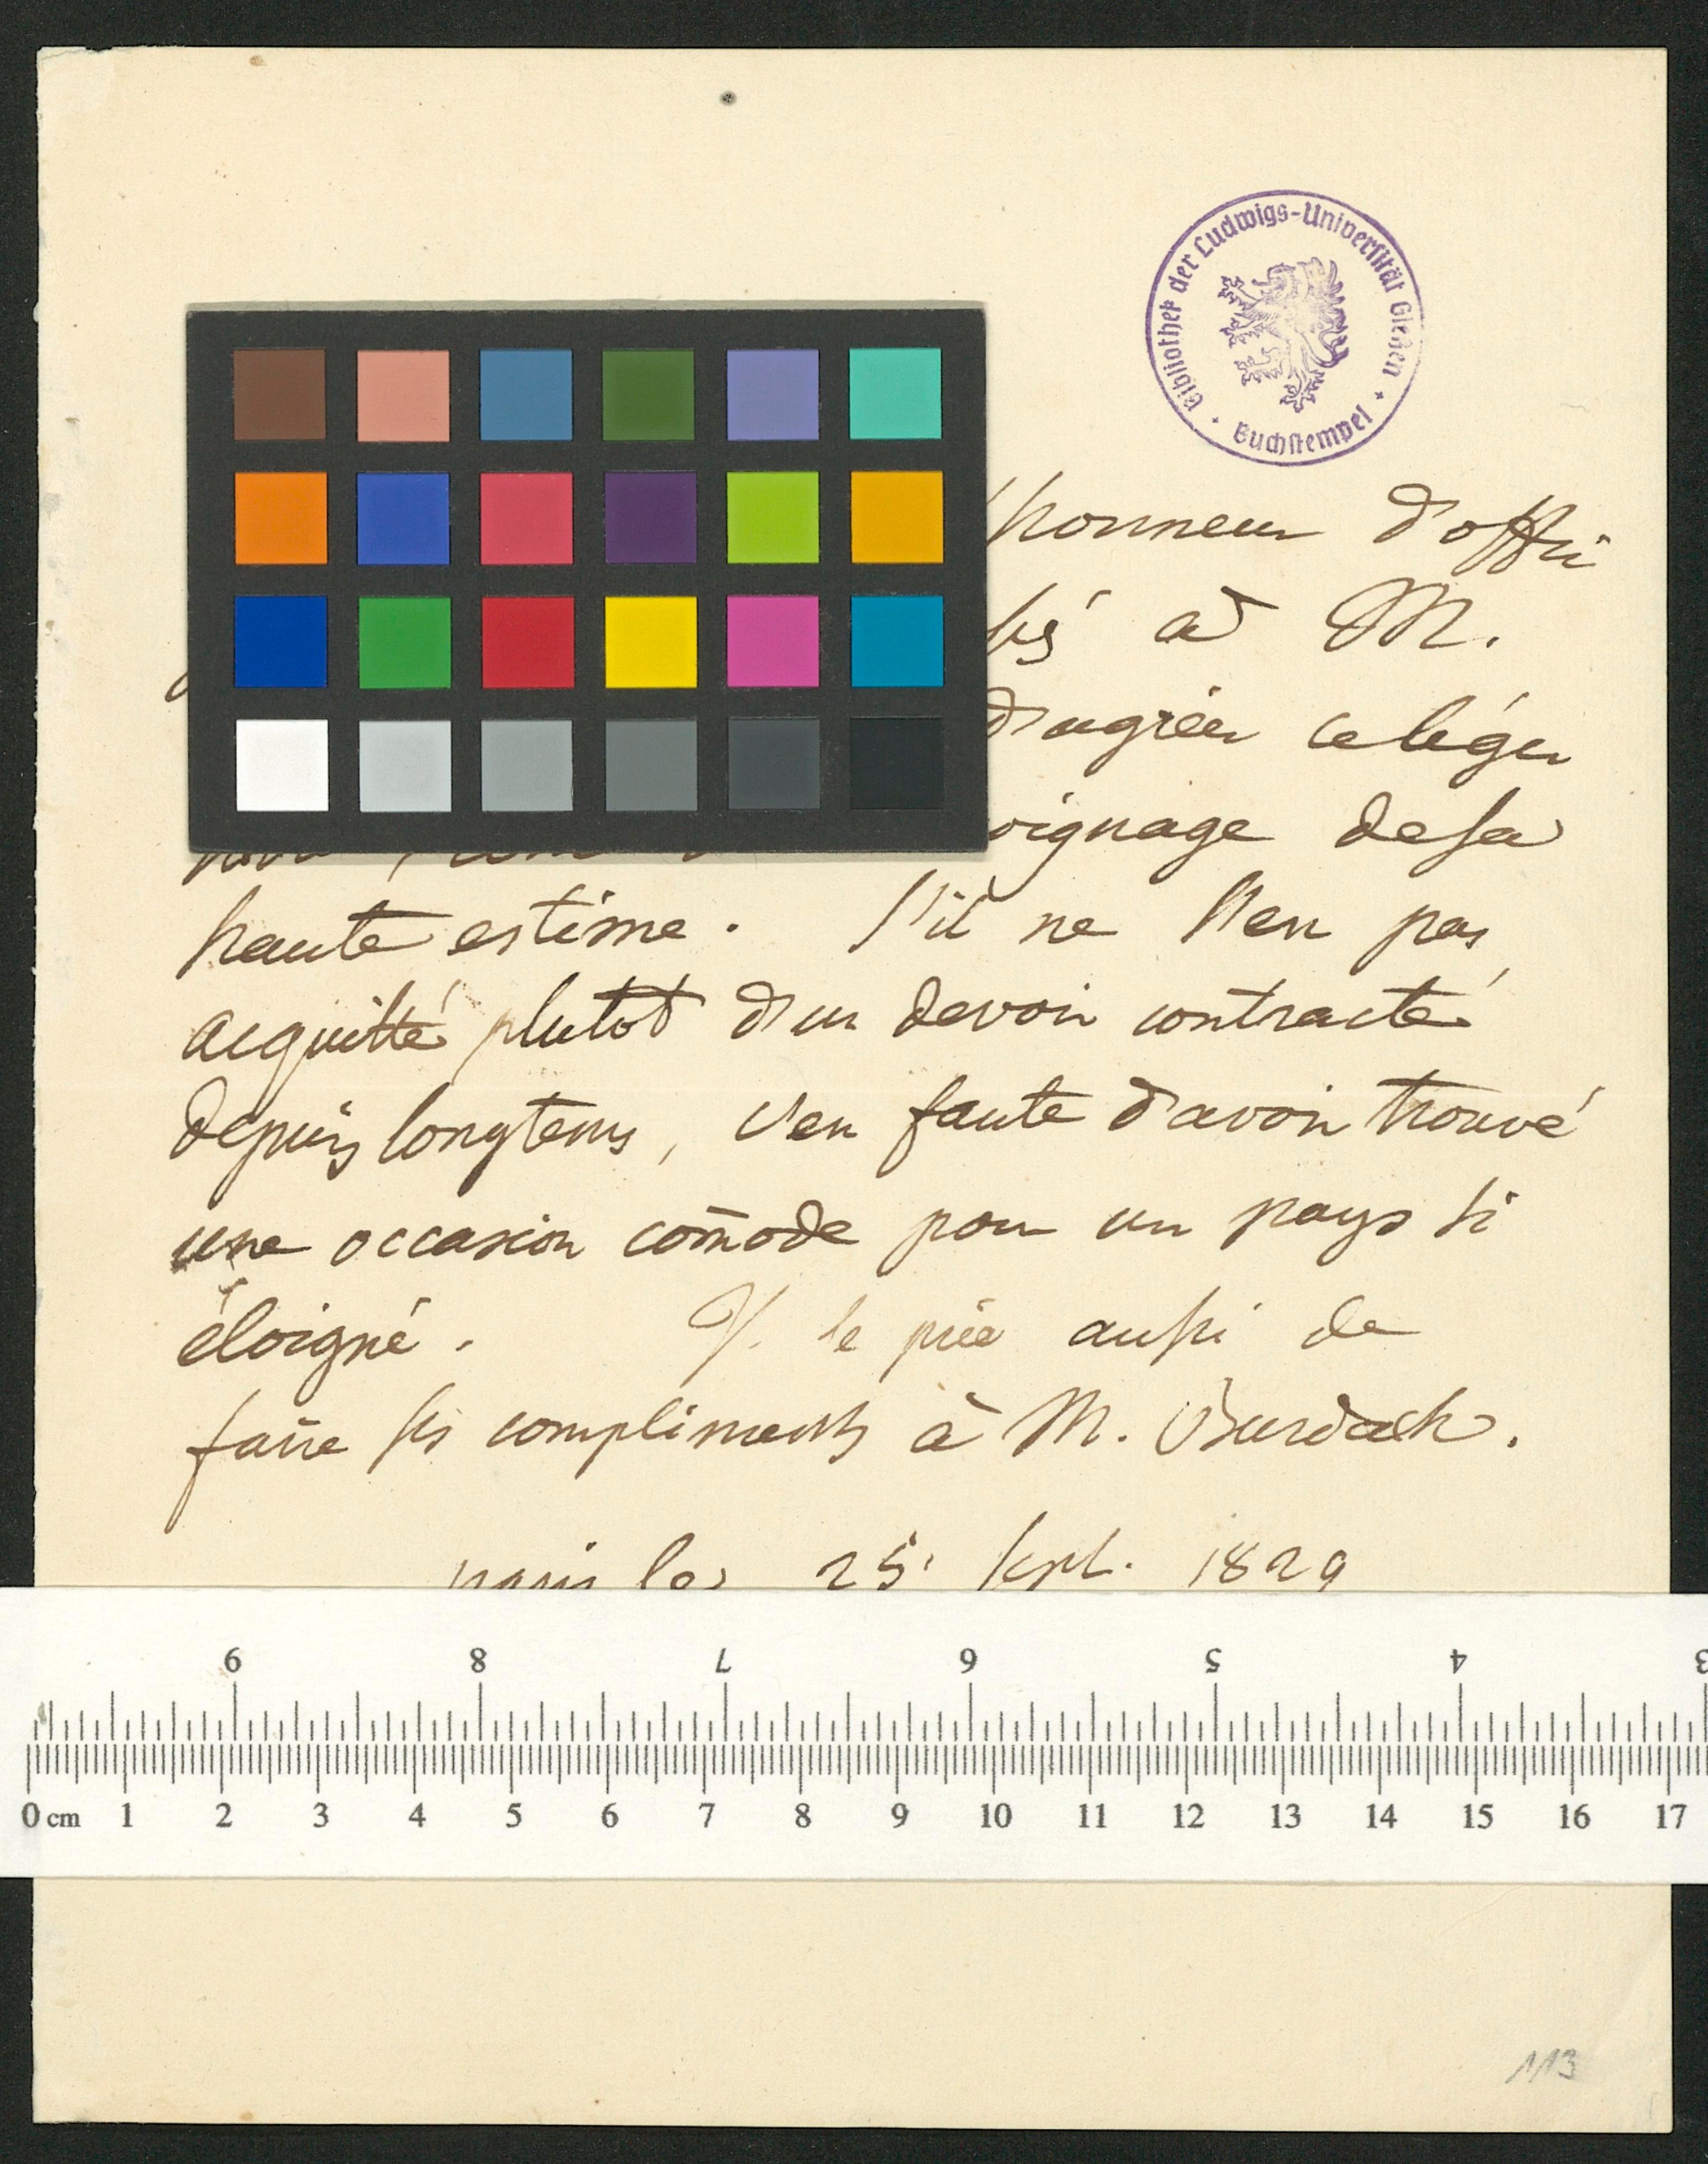 Bibliothek der Ludwigs-Universität Gießen
Buchstempel
honneur d'offrir
à M.
d'agréer ce léger
oignage de sa
haute estime. S'il ne s'en pas
acquitté plutot d'un devoir contracté
depuis longtems, c'en faute d'avoir trouvé
une occasion com̄ode pour un pays si
éloigné. Il le prie aussi de
faire ses compliments à M. Burdach.
paris le 25 sept. 1829
9 8 7 6 5 4 3
0 cm 1 2 3 4 5 6 7 8 9 10 11 12 13 14 15 16 17
113